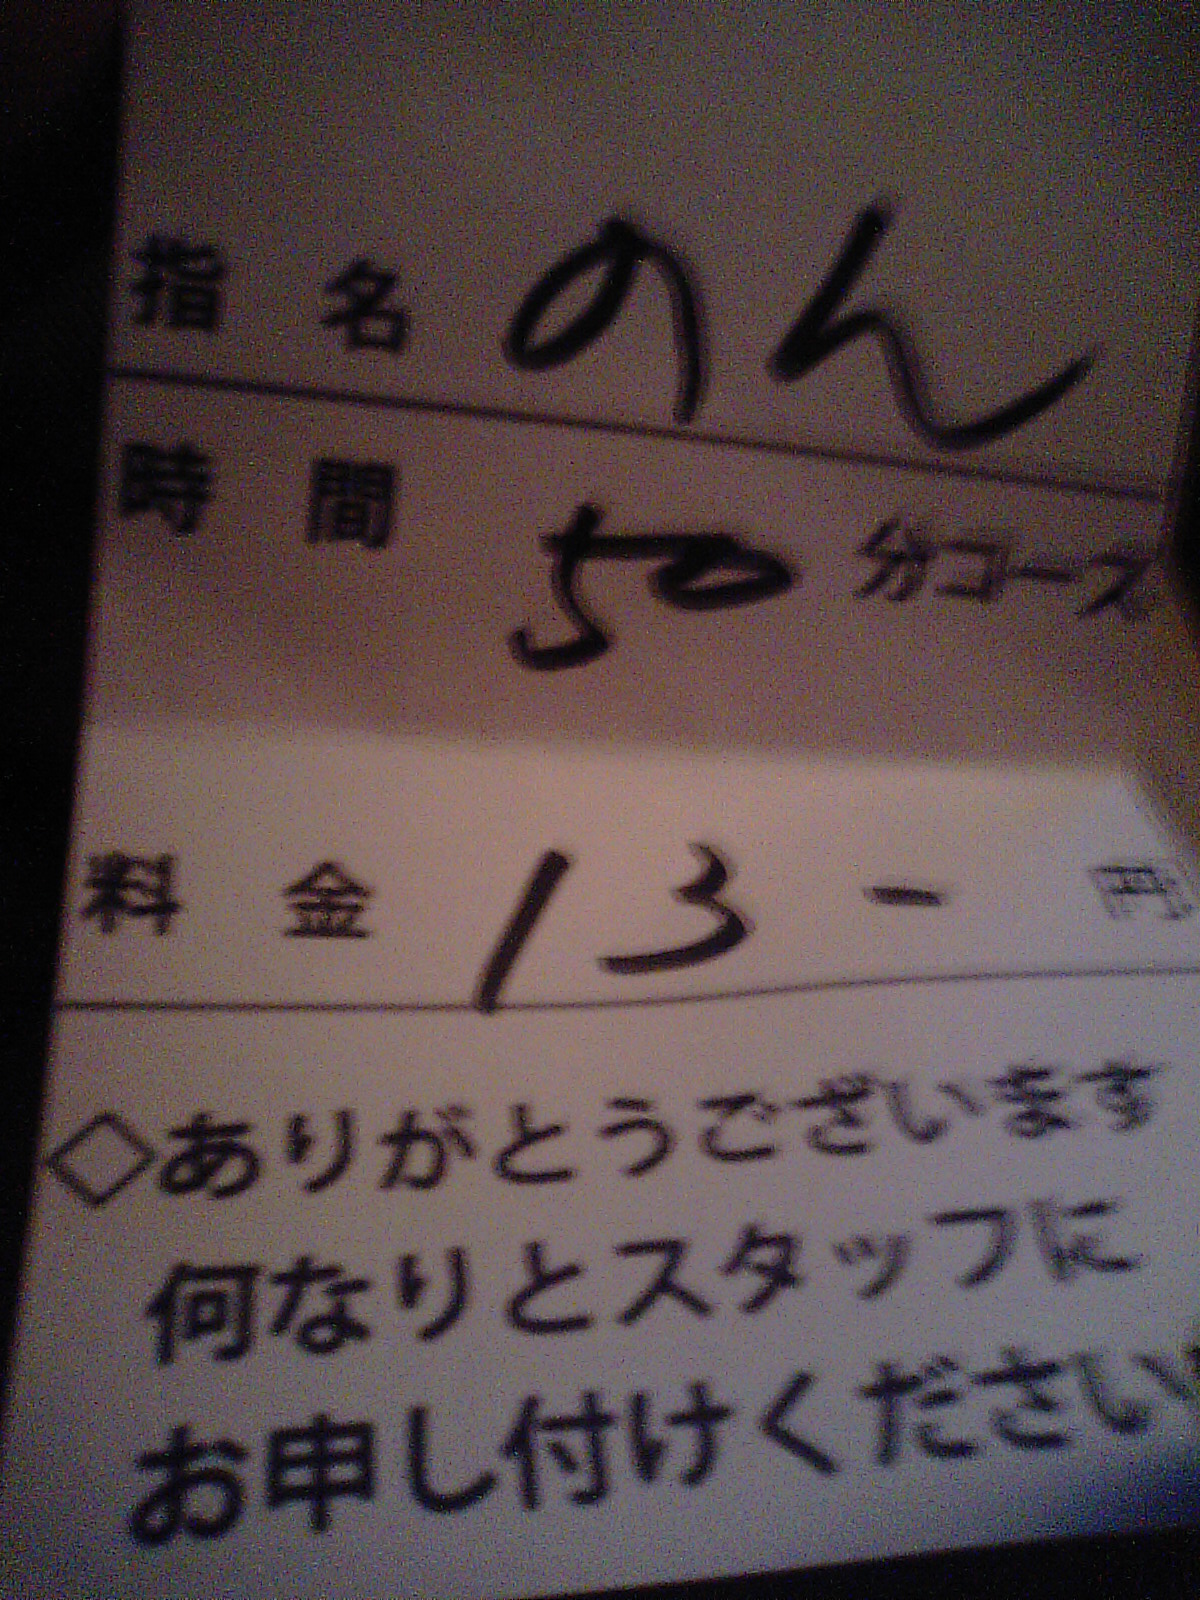 指名 のん
時間 50 分コース
料金 13 - 円
◇ありがとうございます
何なりとスタッフに
お申し付けください